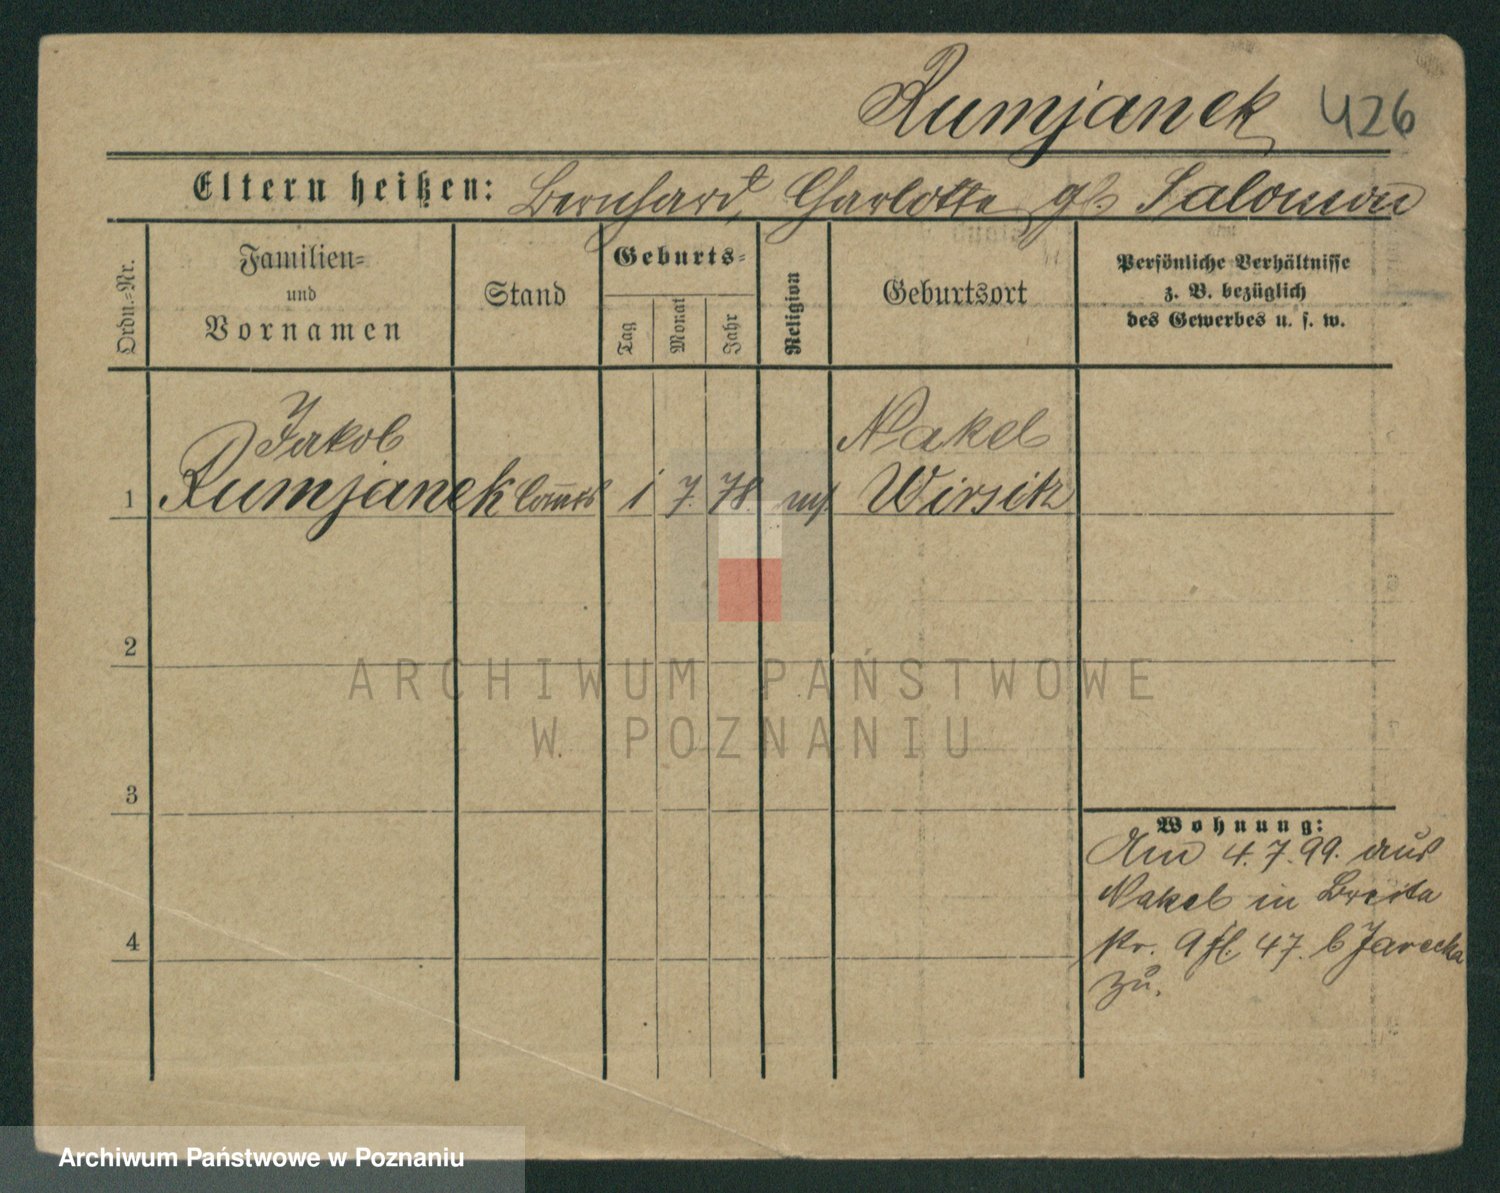 Rumjanek 426
Eltern heißen: Bernhard, Charlotte gb. Salomon
Ordn.=Nr.
Familien=
und
Vornamen
Stand
Geburts=
Tag
Monat
Jahr
Religion
Geburtsort
Persönliche Verhältnisse
z. B. bezüglich
des Gewerbes u. s. w.
Jakob Nakel
1 Rumjanek 1 7. 78. Wirsitz
2
3
4
Wohnung:
Am 4.7.99. aus
Nakel in Breite
str. 9 47. b Jarecka
zu.
ARCHIWUM PAŃSTWOWE
W POZNANIU
Archiwum Państwowe w Poznaniu